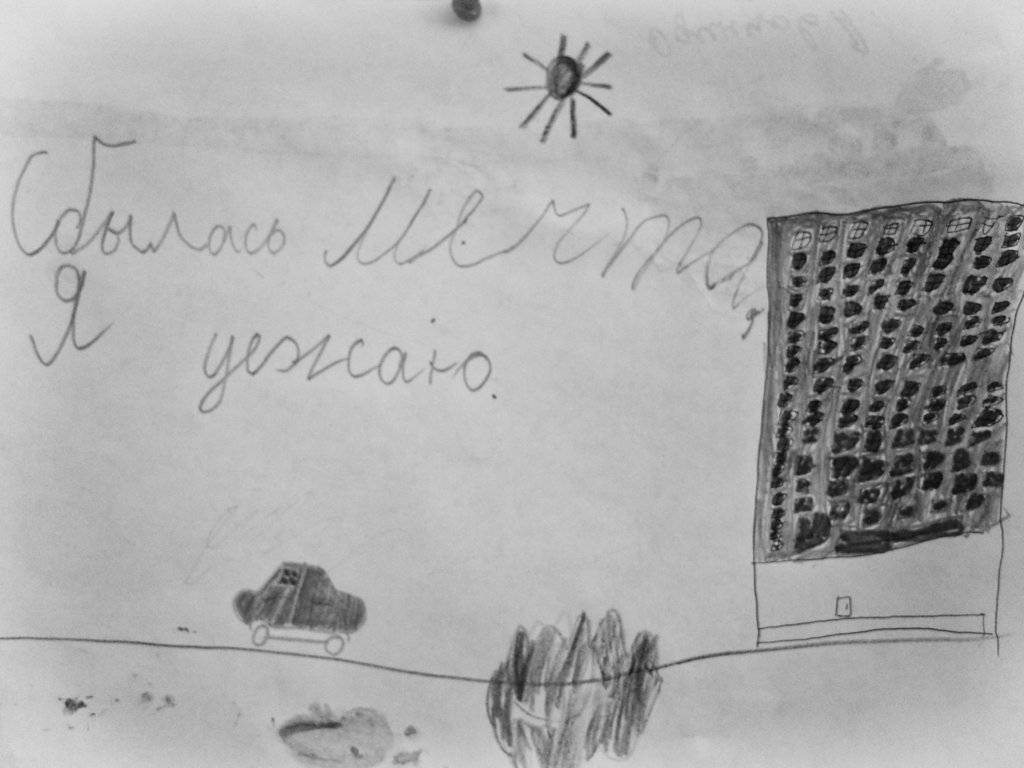 Сбылась мечта,
Я уезжаю.